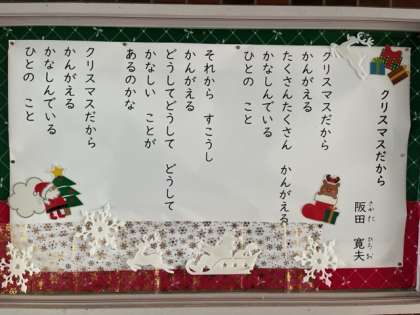 クリスマスだから
阪田 寛夫
さかた ひろお
クリスマスだから
かんがえる
たくさんたくさん かんがえる
かなしんでいる
ひとの こと
それから すこうし
かんがえる
どうしてどうして どうして
かなしい ことが
あるのかな
クリスマスだから
かんがえる
かなしんでいる
ひとの こと